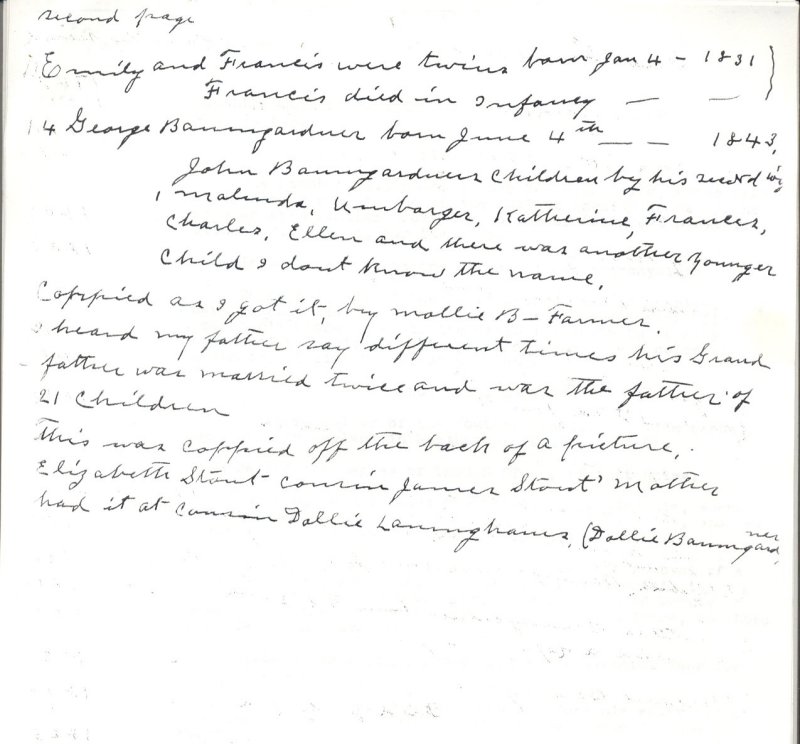 second page
Emily and Francis were twins born Jan 4 - 1831 }
Francis died in Infancy — —
14 George Baumgardner born June 4th — — 1843,
John Baumgardners Children by his second
Malinda, Umbarger, Katherine, Frances,
Charles, Ellen and there was another younger
Child I dont know the name.
Coppied as I got it, by Mollie B- Farmer.
I heard my father say different times his Grand
father was married twice and was the father of
21 Children
This was coppied off the back of a picture,.
Elizabeth Stout cousin James Stout' Mother
had it at cousin Dollie Laninghams, (Dollie Baumgardner,